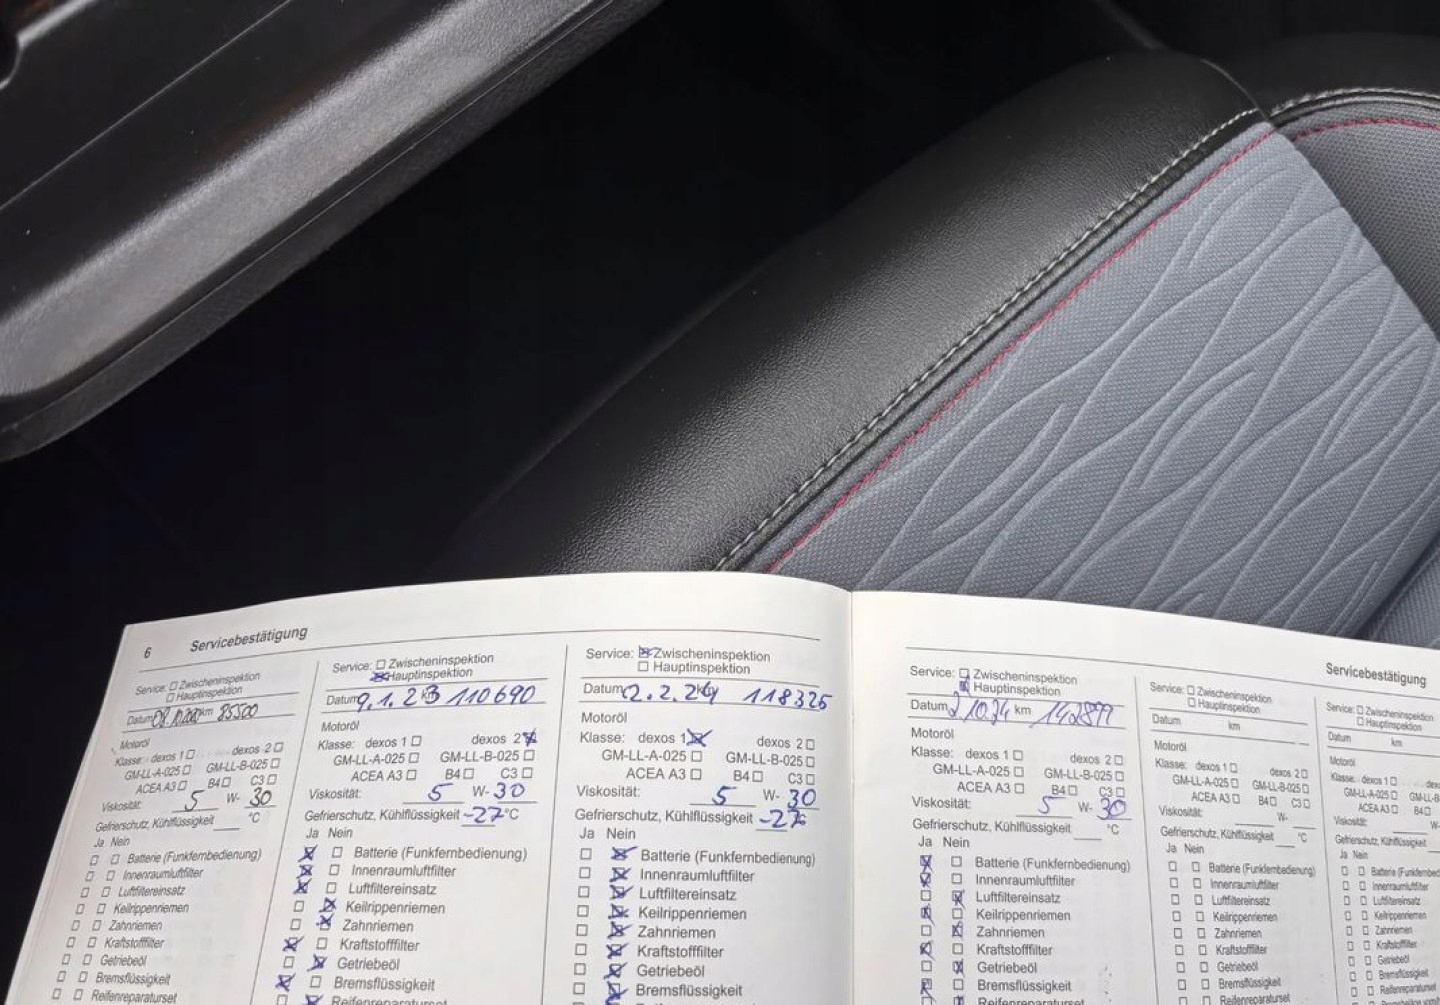 6 Servicebestätigung
Service: Zwischeninspektion
Hauptinspektion
Datum km 85500
Motoröl
Klasse: dexos 1 dexos 2
GM-LL-A-025 GM-LL-B-025
ACEA A3 B4 C3
Viskosität: 5 W- 30
Gefrierschutz, Kühlflüssigkeit °C
Ja Nein
Batterie (Funkfernbedienung)
Innenraumluftfilter
Luftfiltereinsatz
Keilrippenriemen
Zahnriemen
Kraftstofffilter
Getriebeöl
Bremsflüssigkeit
Reifenreparaturset
Service: Zwischeninspektion
Hauptinspektion
Datum 9.1.23 km 110690
Motoröl
Klasse: dexos 1 dexos 2
GM-LL-A-025 GM-LL-B-025
ACEA A3 B4 C3
Viskosität: 5 W- 30
Gefrierschutz, Kühlflüssigkeit -27 °C
Ja Nein
Batterie (Funkfernbedienung)
Innenraumluftfilter
Luftfiltereinsatz
Keilrippenriemen
Zahnriemen
Kraftstofffilter
Getriebeöl
Bremsflüssigkeit
Reifenreparaturset
Service: Zwischeninspektion
Hauptinspektion
Datum 2.2.24 km 118325
Motoröl
Klasse: dexos 1 dexos 2
GM-LL-A-025 GM-LL-B-025
ACEA A3 B4 C3
Viskosität: 5 W- 30
Gefrierschutz, Kühlflüssigkeit -27
Ja Nein
Batterie (Funkfernbedienung)
Innenraumluftfilter
Luftfiltereinsatz
Keilrippenriemen
Zahnriemen
Kraftstofffilter
Getriebeöl
Bremsflüssigkeit
Servicebestätigung
Service: Zwischeninspektion
Hauptinspektion
Datum 2.10.24 km 142899
Motoröl
Klasse: dexos 1 dexos 2
GM-LL-A-025 GM-LL-B-025
ACEA A3 B4 C3
Viskosität: 5 W- 30
Gefrierschutz, Kühlflüssigkeit °C
Ja Nein
Batterie (Funkfernbedienung)
Innenraumluftfilter
Luftfiltereinsatz
Keilrippenriemen
Zahnriemen
Kraftstofffilter
Getriebeöl
Bremsflüssigkeit
Reifenreparaturset
Service: Zwischeninspektion
Hauptinspektion
Datum km
Motoröl
Klasse: dexos 1 dexos 2
GM-LL-A-025 GM-LL-B-025
ACEA A3 B4 C3
Viskosität: W-
Gefrierschutz, Kühlflüssigkeit °C
Ja Nein
Batterie (Funkfernbedienung)
Innenraumluftfilter
Luftfiltereinsatz
Keilrippenriemen
Zahnriemen
Kraftstofffilter
Getriebeöl
Bremsflüssigkeit
Reifenreparaturset
Service: Zwischeninspektion
Hauptinspektion
Datum km
Motoröl
Klasse: dexos 1
GM-LL-A-025
ACEA A3 B4
Viskosität: W-
Gefrierschutz, Kühlflüssigkeit
Ja Nein
Batterie
Innenraumluftfilter
Luftfiltereinsatz
Keilrippenriemen
Zahnriemen
Kraftstofffilter
Getriebeöl
Bremsflüssigkeit
Reifenreparaturset